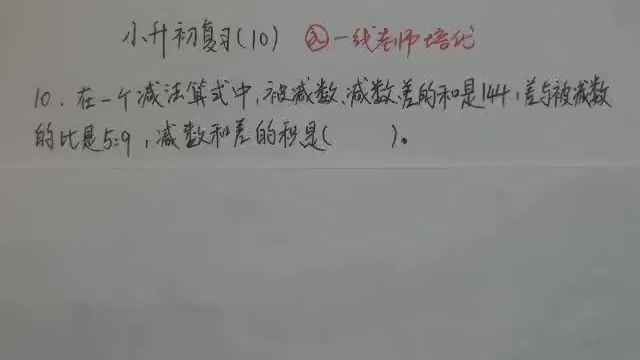 小升初复习(10) @一线老师培优
10. 在一个减法算式中,被减数、减数、差的和是144,差与被减数
的比是5:9,减数和差的积是( )。